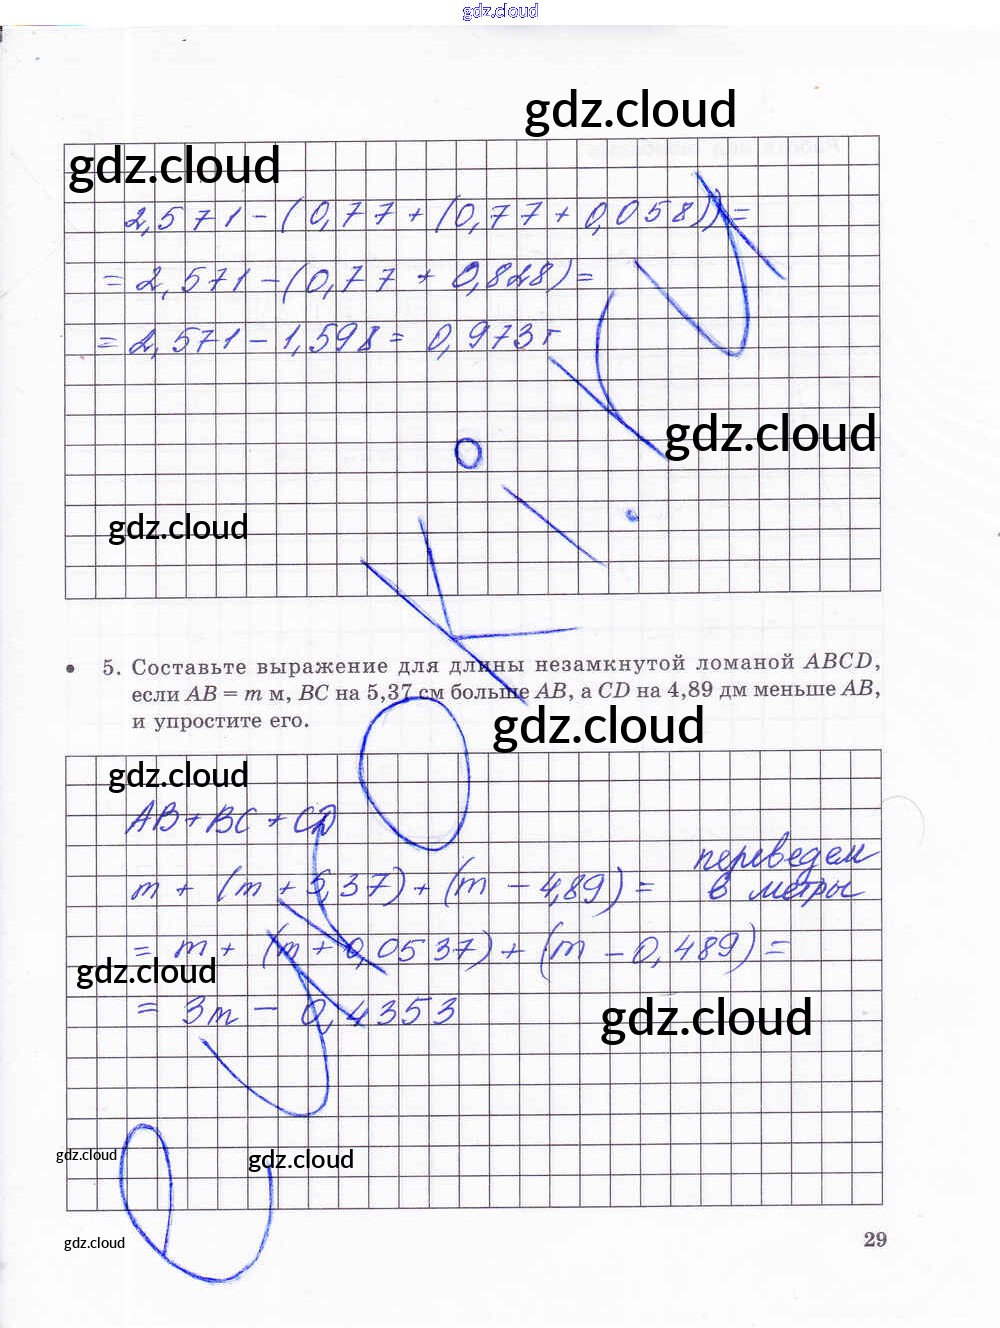 gdz.cloud
gdz.cloud
gdz.cloud
2,571 - (0,77 + (0,77 + 0,058)) =
= 2,571 - (0,77 + 0,828) =
= 2,571 - 1,598 = 0,973 т
gdz.cloud
gdz.cloud
• 5. Составьте выражение для длины незамкнутой ломаной ABCD,
если AB = m м, BC на 5,37 см больше AB, а CD на 4,89 дм меньше AB,
и упростите его.
gdz.cloud
gdz.cloud
AB + BC + CD
m + (m + 5,37) + (m - 4,89) = переведем
в метры
= m + (m + 0,0537) + (m - 0,489) =
gdz.cloud
= 3m - 0,4353
gdz.cloud
gdz.cloud
gdz.cloud
gdz.cloud
29